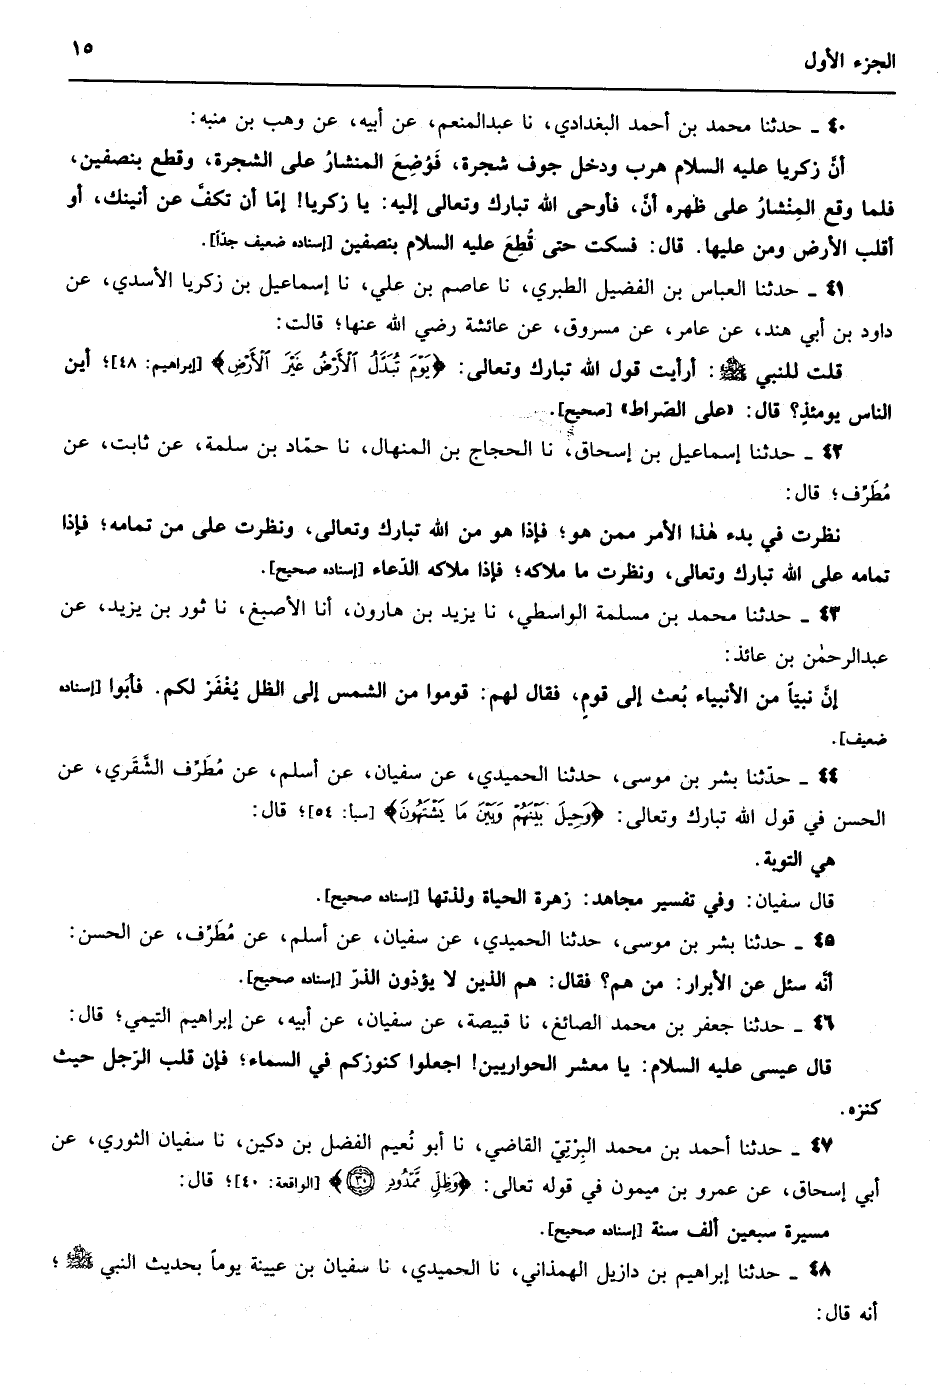 الجزء الأول ١٥
٤٠ ـ حدثنا محمد بن أحمد البغدادي، نا عبدالمنعم، عن أبيه، عن وهب بن منبه:
أنَّ زكريا عليه السلام هرب ودخل جوف شجرة، فَوُضِعَ المنشارُ على الشجرة، وقطع بنصفين،
فلما وقع المِنْشارُ على ظهره أنَّ، فأوحى الله تبارك وتعالى إليه: يا زكريا! إمّا أن تكفَّ عن أنينك، أو
أقلب الأرض ومن عليها. قال: فسكت حتى قُطِعَ عليه السلام بنصفين [إسناده ضعيف جدّاً].
٤١ ـ حدثنا العباس بن الفضيل الطبري، نا عاصم بن علي، نا إسماعيل بن زكريا الأسدي، عن
داود بن أبي هند، عن عامر، عن مسروق، عن عائشة رضي الله عنها؛ قالت:
قلت للنبي ﷺ: أرأيت قول الله تبارك وتعالى: ﴿يَوْمَ تُبَدَّلُ ٱلْأَرْضُ غَيْرَ ٱلْأَرْضِ﴾ [إبراهيم: ٤٨]؛ أين
الناس يومئذٍ؟ قال: «على الصّراط» [صحيح].
٤٢ ـ حدثنا إسماعيل بن إسحاق، نا الحجاج بن المنهال، نا حمّاد بن سلمة، عن ثابت، عن
مُطَرِّف؛ قال:
نظرت في بدء هٰذا الأمر ممن هو؛ فإذا هو من الله تبارك وتعالى، ونظرت على من تمامه؛ فإذا
تمامه على الله تبارك وتعالى، ونظرت ما ملاكه؛ فإذا ملاكه الدّعاء [إسناده صحيح].
٤٣ ـ حدثنا محمد بن مسلمة الواسطي، نا يزيد بن هارون، أنا الأصبغ، نا ثور بن يزيد، عن
عبدالرحمٰن بن عائذ:
إنَّ نبيّاً من الأنبياء بُعث إلى قومٍ، فقال لهم: قوموا من الشمس إلى الظل يُغْفَرْ لكم. فأبَوا [إسناده
ضعيف].
٤٤ ـ حدّثنا بشر بن موسى، حدثنا الحميدي، عن سفيان، عن أسلم، عن مُطَرِّف الشَّقَري، عن
الحسن في قول الله تبارك وتعالى: ﴿وَحِيلَ بَيْنَهُمْ وَبَيْنَ مَا يَشْتَهُونَ﴾ [سبأ: ٥٤]؛ قال:
هي التوبة.
قال سفيان: وفي تفسير مجاهد: زهرة الحياة ولذتها [إسناده صحيح].
٤٥ ـ حدثنا بشر بن موسى، حدثنا الحميدي، عن سفيان، عن أسلم، عن مُطَرِّف، عن الحسن:
أنَّه سئل عن الأبرار: من هم؟ فقال: هم الذين لا يؤذون الذرّ [إسناده صحيح].
٤٦ ـ حدثنا جعفر بن محمد الصائغ، نا قبيصة، عن سفيان، عن أبيه، عن إبراهيم التيمي؛ قال:
قال عيسى عليه السلام: يا معشر الحواريين! اجعلوا كنوزكم في السماء؛ فإن قلب الرّجل حيث
كنزه.
٤٧ ـ حدثنا أحمد بن محمد البِرْتِيّ القاضي، نا أبو نُعيم الفضل بن دكين، نا سفيان الثوري، عن
أبي إسحاق، عن عمرو بن ميمون في قوله تعالى: ﴿وَظِلٍّ مَّمْدُودٍ ٣٠﴾ [الواقعة: ٤٠]؛ قال:
مسيرة سبعين ألف سنة [إسناده صحيح].
٤٨ ـ حدثنا إبراهيم بن دازيل الهمذاني، نا الحميدي، نا سفيان بن عيينة يوماً بحديث النبي ﷺ؛
أنه قال: